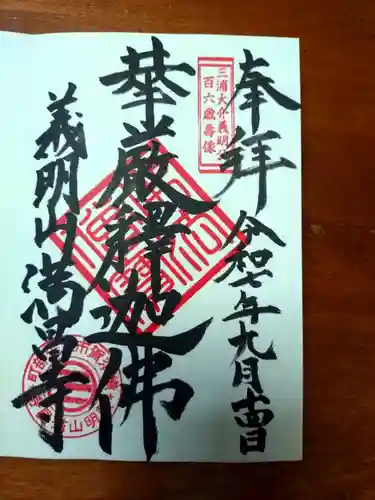 奉拝
令和七年九月吉日
三浦大介義明公
百六歳壽像
華厳釋迦佛
義明山満昌寺